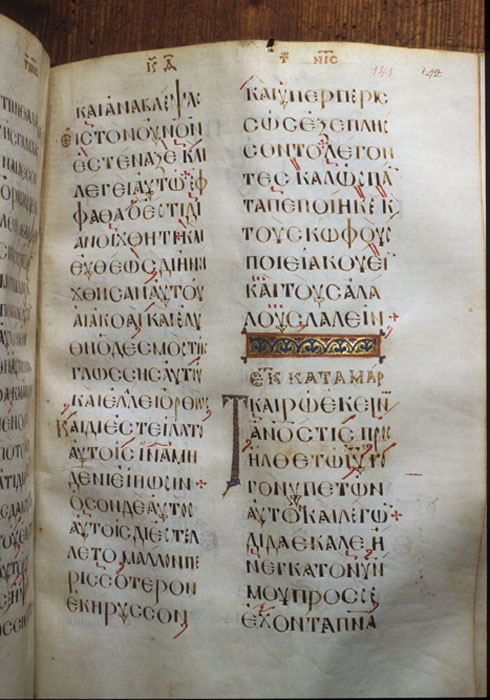 141 142
ΚΑΙΑΝΑΒΛΕΨΑC
ΕΙCΤΟΝΟΥΝΟΝ
ΕCΤΕΝΑΞΕΚΑΙ
ΛΕΓΕΙΑΥΤΩΕΦ
ΦΑΘΑΟΕCΤΙΔΙ
ΑΝΟΙΧΘΗΤΙΚΑΙ
ΕΥΘΕΩCΔΙΗΝΟΙ
ΧΘΗCΑΝΑΥΤΟΥ
ΑΙΑΚΟΑΙΚΑΙΕΛΥ
ΘΗΟΔΕCΜΟCΤΗC
ΓΛΩCCΗCΑΥΤΟΥ
ΚΑΙΕΛΛΕΙΟΡΘΩC
ΚΑΙΔΙΕCΤΕΙΛΑΤΟ
ΑΥΤΟΙCΙΝΑΜΗ
ΔΕΝΙΕΙΠΩCΙΝ+
ΟCΟΝΔΕΑΥΤΟC
ΑΥΤΟΙCΔΙΕCΤΕΛ
ΛΕΤΟΜΑΛΛΟΝΠΕ
ΡΙCCΟΤΕΡΟΝ
ΕΚΗΡΥCCΟΝ
ΚΑΙΥΠΕΡΠΕΡΙC
CΩCΕΞΕΠΛΗC
CΟΝΤΟΛΕΓΟΝ
ΤΕCΚΑΛΩCΠΑ
ΤΑΠΕΠΟΙΗΚΕΚ
ΤΟΥCΚΩΦΟΥC
ΠΟΙΕΙΑΚΟΥΕΙ
ΚΑΙΤΟΥCΑΛΑ
ΛΟΥCΛΑΛΕΙΝ+
ΕΚ ΚΑΤΑΜΑΡ
ΤΚΑΙΡΩΕΚΕΙΝ
ΑΝΟCΤΙCΠΡΟC
ΗΛΘΕΤΩΙΥ
ΓΟΝΥΠΕΤΩΝ
ΑΥΤΟΚΑΙΛΕΓΩ+
ΔΙΔΑCΚΑΛΕΗ
ΝΕΓΚΑΤΟΝΥΙΝ
ΜΟΥΠΡΟCCΕ
ΕΧΟΝΤΑΠΝΑ